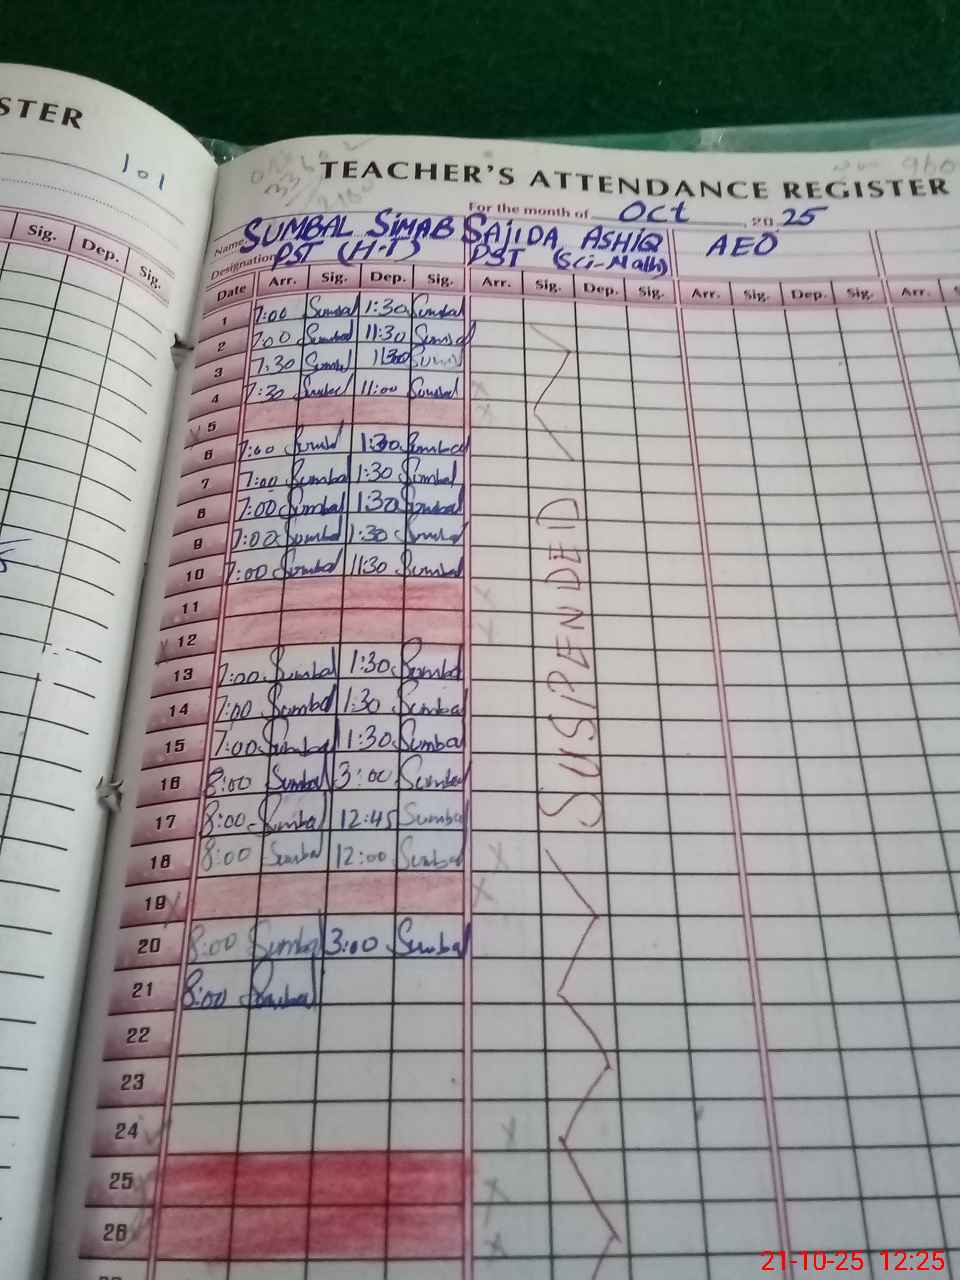 STER
101
TEACHER'S ATTENDANCE REGISTER
For the month of Oct 2025
Name SUMBAL SIMAB SAJIDA ASHIQ AEO
Designation PST (H-T) PST (Sci-Math)
Sig. Dep. Sig.
Date Arr. Sig. Dep. Sig. Arr. Sig. Dep. Sig. Arr. Sig. Dep. Sig. Arr.
1 7:00 Sumbal 1:30 Sumbal
2 7:00 Sumbal 11:30 Sumbal
3 7:30 Sumbal
4 7:30 Sumbal 11:00 Sumbal
5
6 7:00 Sumbal 1:30 Sumbal
7 7:00 Sumbal 1:30 Sumbal
8 7:00 Sumbal 1:30 Sumbal
9 7:00 Sumbal 1:30 Sumbal
10 7:00 Sumbal 11:30 Sumbal
11
12
13 7:00 Sumbal 1:30 Sumbal
14 7:00 Sumbal 1:30 Sumbal
15 7:00 Sumbal 1:30 Sumbal
16 8:00 Sumbal 3:00 Sumbal
17 8:00 Sumbal 12:45 Sumbal
18 8:00 Sumbal 12:00 Sumbal
19
20 8:00 Sumbal 3:00 Sumbal
21 8:00 Sumbal
22
23
24
25
26
SUSPENDED
21-10-25 12:25